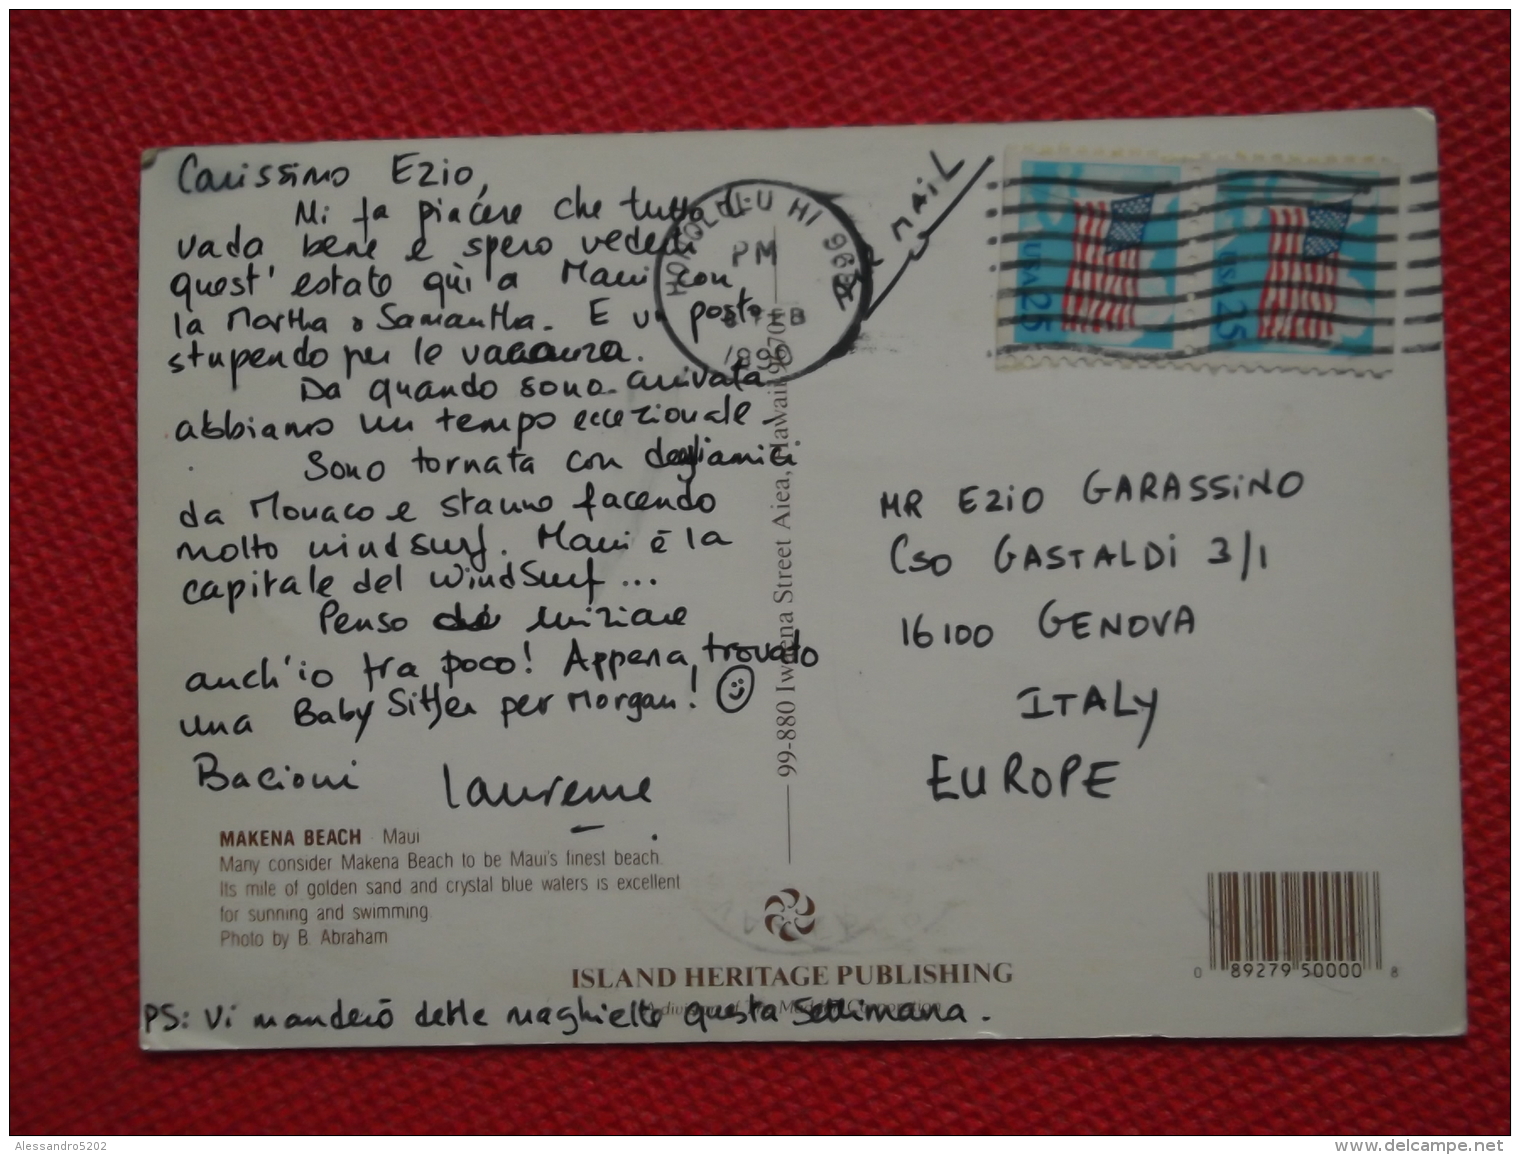 Carissimo Ezio,
Mi fa piacere che tutto
vada bene e spero vederti
quest' estate qui a Maui con
la Martha e Samantha. E un posto
stupendo per le vacanza.
Da quando sono arrivata
abbiamo un tempo eccezionale.
Sono tornata con degli amici
da Monaco e stanno facendo
molto windsurf. Maui è la
capitale del WindSurf ...
Penso iniziare
anch'io tra poco! Appena trovato
una Baby Sitter per Morgan! ☺
Bacioni Laurence
MAKENA BEACH Maui
Many consider Makena Beach to be Maui's finest beach.
Its mile of golden sand and crystal blue waters is excellent
for sunning and swimming.
Photo by B. Abraham
PS: Vi manderò delle magliette questa Settimana.
HONOLULU HI
PM
99-880 Iwaena Street Aiea, Hawaii 96701
ISLAND HERITAGE PUBLISHING
AIR MAIL
USA 25
USA 25
MR EZIO GARASSINO
Cso GASTALDI 3/1
16100 GENOVA
ITALY
EUROPE
0 89279 50000 8
Alessandro5202
www.delcampe.net